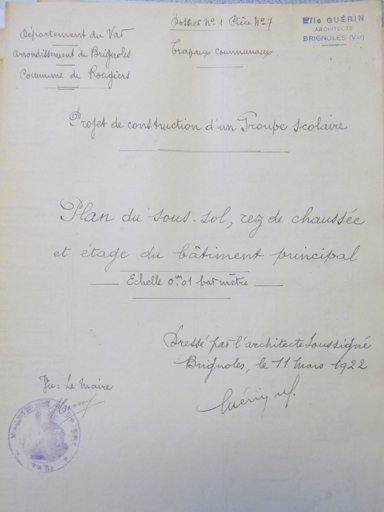 Département du Var
Arrondissement de Brignoles
Commune de Rougiers
Dossier N° 1 Pièce N° 7
Travaux communaux
GUÉRIN
ARCHITECTE
BRIGNOLES (Var)
Projet de construction d'un Groupe scolaire
Plan du sous-sol, rez de chaussée
et étage du bâtiment principal
Echelle 0m01 par mètre
Dressé par l'architecte soussigné
Brignoles, le 11 mars 1922
Guérin
Vu: Le Maire